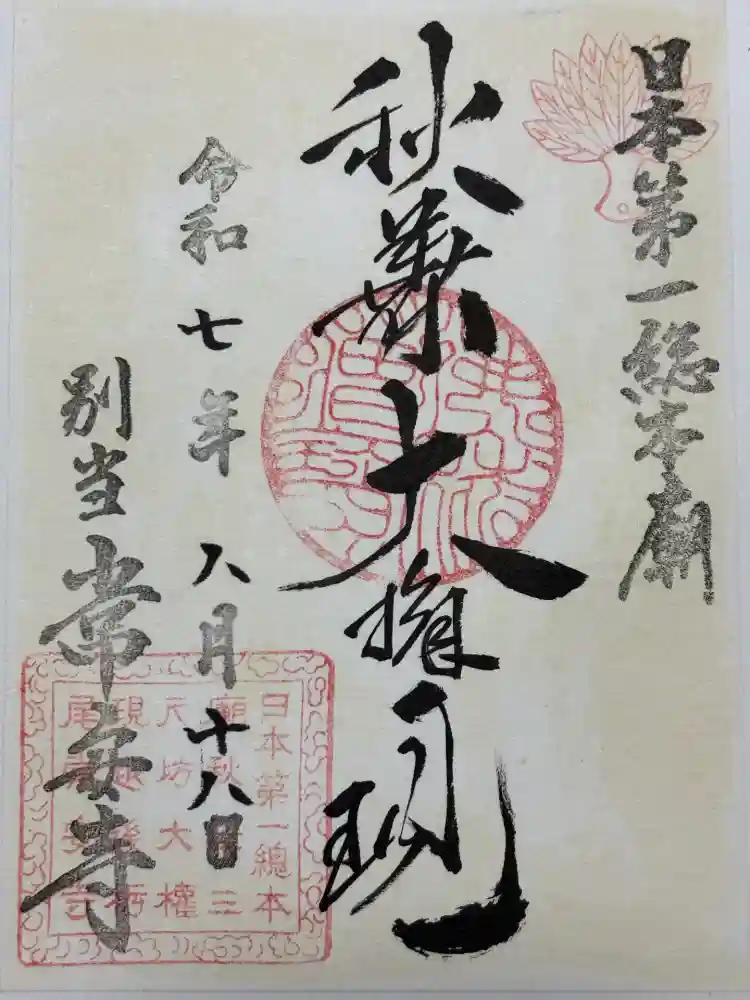 日本第一総本廟
秋葉大権現
令和七年八月十八日
別当 常安寺
日本第一總本
廟秋葉三
尺坊大權
現越後栃
尾常安寺